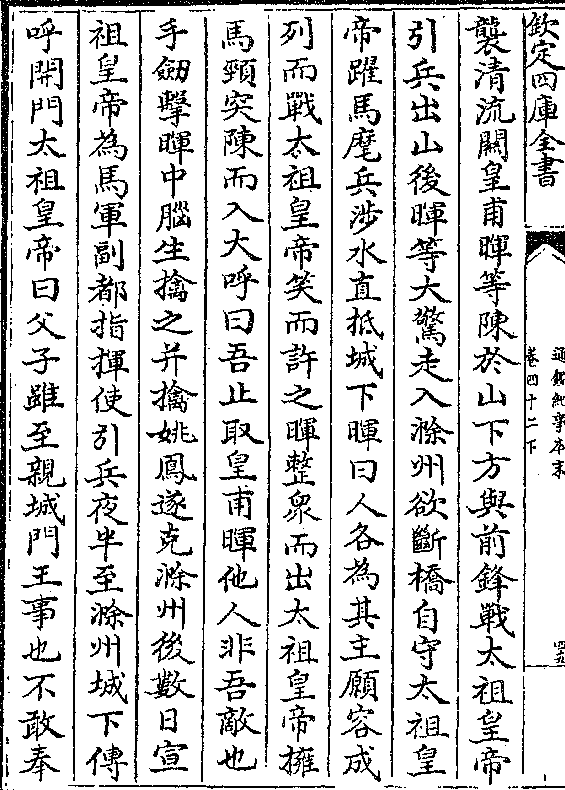 欽定四庫全書
通鑑紀事本末
卷四十二下
襲清流關皇甫暉等陳於山下方與前鋒戰太祖皇帝
引兵出山後暉等大驚走入滁州欲斷橋自守太祖皇
帝躍馬麾兵涉水直抵城下暉曰人各為其主願容成
列而戰太祖皇帝笑而許之暉整衆而出太祖皇帝擁
馬頸突陳而入大呼曰吾止取皇甫暉他人非吾敵也
手劒擊暉中腦生擒之并擒姚鳳遂克滁州後數日宣
祖皇帝為馬軍副都指揮使引兵夜半至滁州城下傳
呼開門太祖皇帝曰父子雖至親城門王事也不敢奉